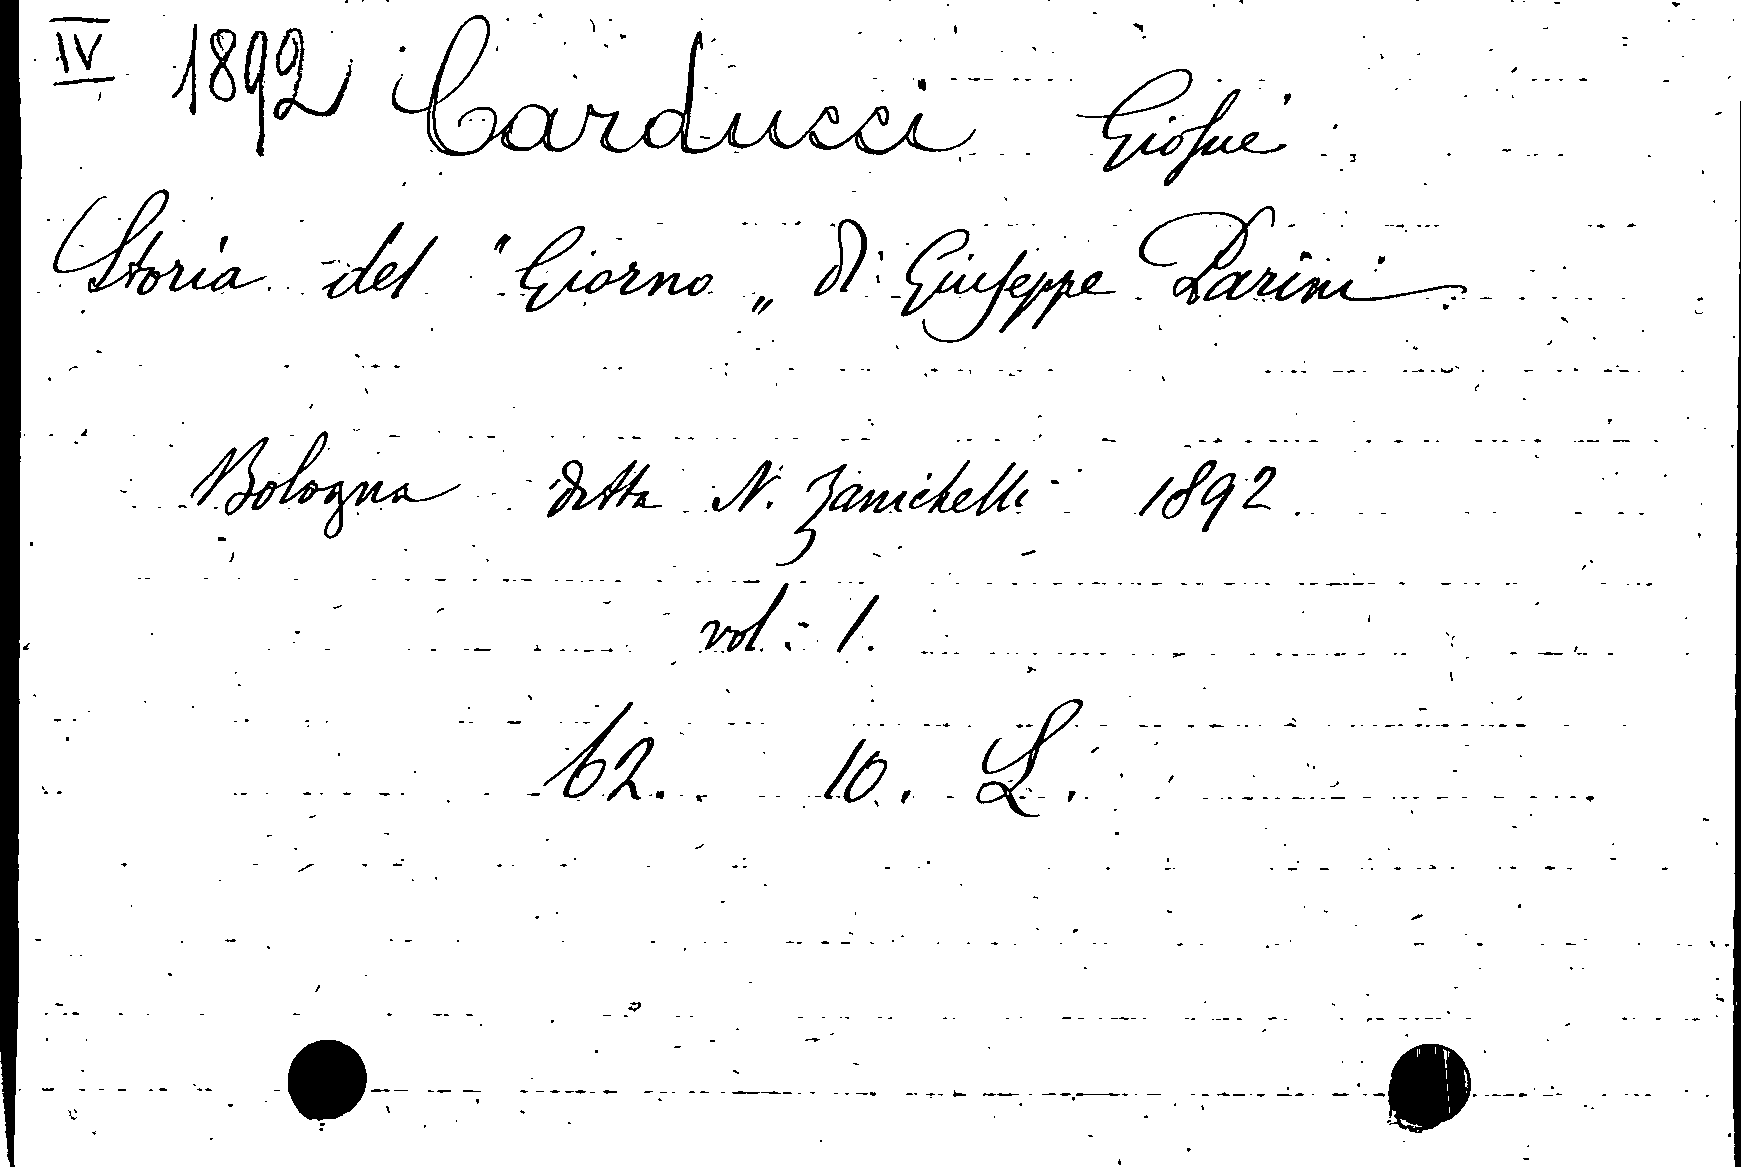 IV 1892 Carducci Giosuè
Storia del "Giorno„ di Giuseppe Parini
Bologna ditta N. Zanichelli 1892
vol: 1.
62. 10. L.